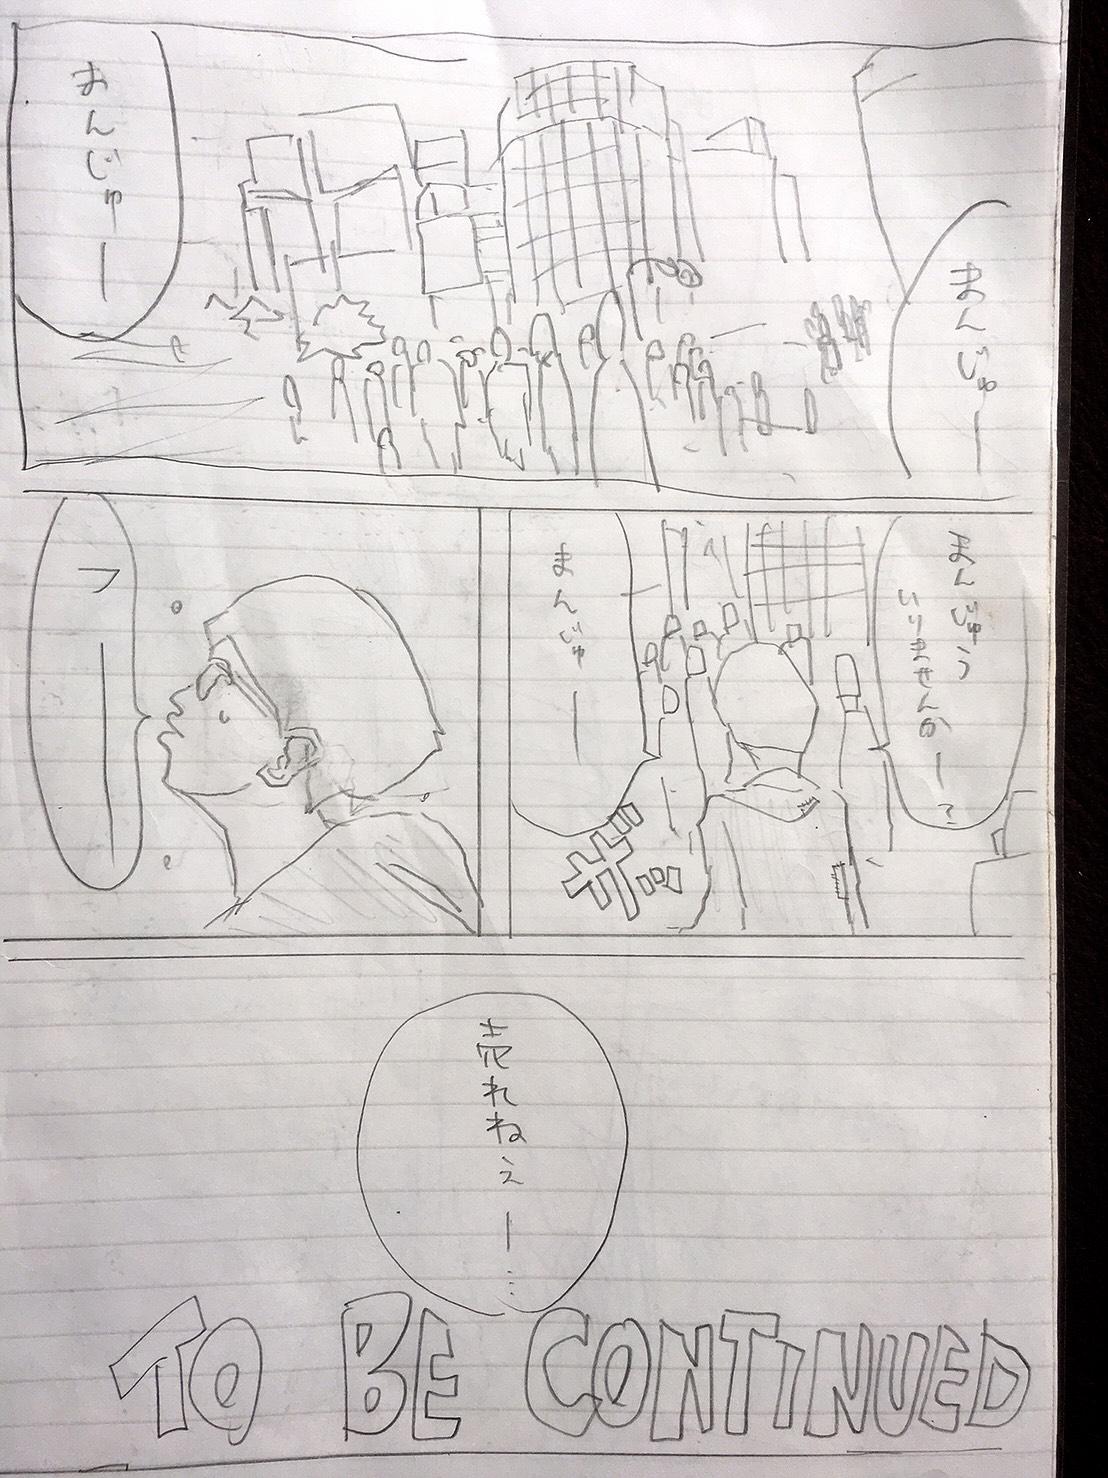 まんじゅー
まんじゅー
まんじゅう
いりませんかー
まんじゅー
フー
売れねぇー…
TO BE CONTINUED